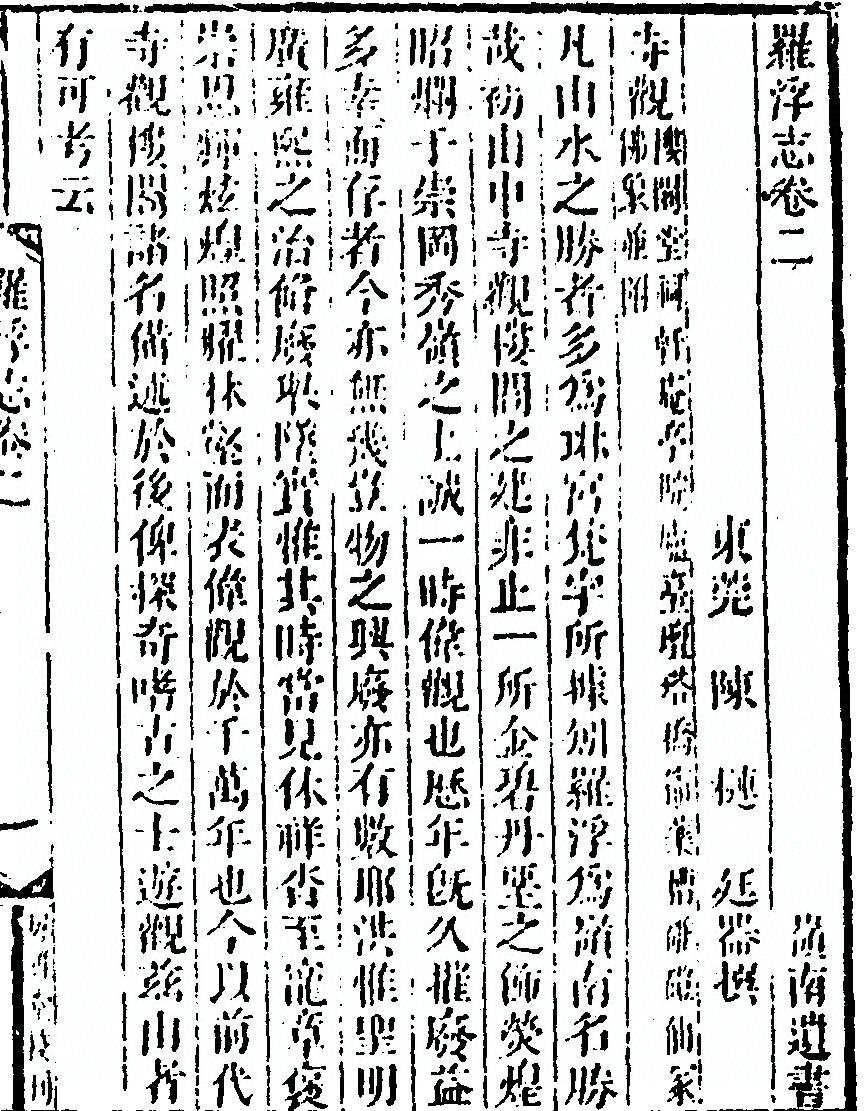 羅浮志卷二 嶺南遺書
東莞 陳 槤 廷器撰
寺觀樓閣堂祠軒庵亭院臺壇塔橋 佛象並附
凡山水之勝者多爲琳宮梵宇所據矧羅浮爲嶺南名勝
哉初山中寺觀樓閣之建非止一所金碧丹堊之飾熒煌
昭爛于崇岡秀嶺之上誠一時偉觀也歷年旣久摧廢益
多幸而存者今亦無幾豈物之興廢亦有數耶洪惟聖明
廣雍熙之治脩廢舉墜實惟其時當見休祥沓至寵章褒
崇恩輝炫煌照曜林壑而表偉觀於千萬年也今以前代
寺觀樓閣諸名備述於後俾探奇嗜古之士遊觀茲山者
有可考云
羅浮志卷二